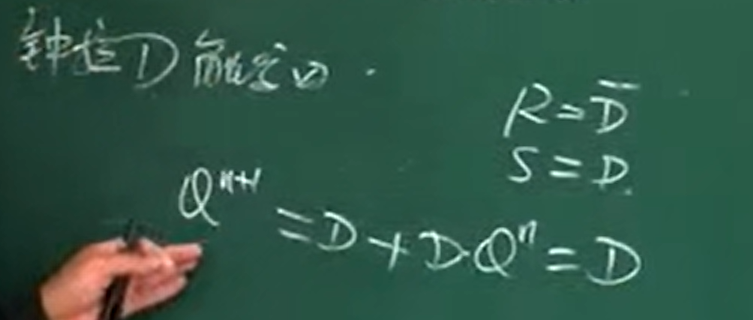 钟控D触发器
R=D̅
S=D
Qⁿ⁺¹=D+D·Qⁿ=D